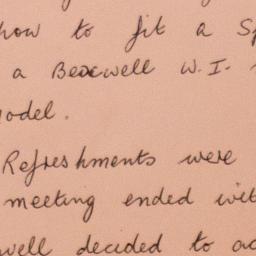 how to fit a Sp
a Bexwell W.I.
model.
Refreshments were
meeting ended wit
well decided to ac